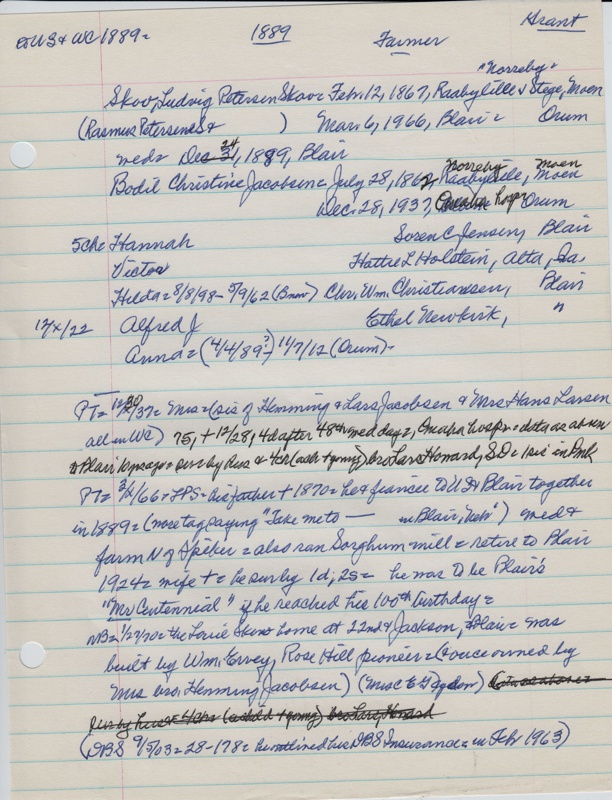 Grant
to US & WC 1889= 1889 Farmer
"Norreby"
Skov, Ludvig Petersen Skov= Feb. 12, 1867, Raabylille & Stege, Moen
(Rasmus Petersen S & ) Mar. 6, 1966, Blair= Orum
med= Dec 24, 1889, Blair
Norreby, Moen
Bodil Christine Jacobsen= July 28, 1862, Raabylille, Moen
Dec. 28, 1937, Omaha hosp Orum
5ch= Hannah Soren C Jensen, Blair
Victor Hattie L Holstein, Alta, Ia.
Hilda= 8/8/98 - 5/9/62 (Bnow) Chr. Wm. Christiansen, Blair
12/x/22 Alfred J Ethel Newkirk, "
Anna= (4/4/89?-) 11/7/12 (Orum)-
PT= 12/30/37= Mrs= (sis of Hemming & Lars Jacobsen & Mrs Hans Larsen
all in WC) 75, + 12/28, 4d after 48th wed day=, Omaha hosp=
to Blair surv by Hus & 4ch bro Lars Howard, SD= 1 sis in Dmk
PT= 3/x/66= LPS= his father + 1870= he & fiancée to US & Blair together
in 1889= (nose tag saying "Take me to — in Blair, Neb") med &
farm N of = also ran Sorghum mill= retire to Blair
1924= wife += he surv by 1d, 2s= he was to be Blair's
"Mr Centennial" if he reached his 100th birthday=
NB= 1/27/70= the Louie Skov home at 22nd & Jackson, Blair= was
built by Wm. Ervey, Rose Hill pioneer= (& once owned by
Mrs bro. Hemming Jacobsen) (Mrs C E)
surv by Hus & 4ch bro Lars, Howard
(DBS 9/5/03= 28-178= he outlined his DBS Insurance= in Feb 1963)